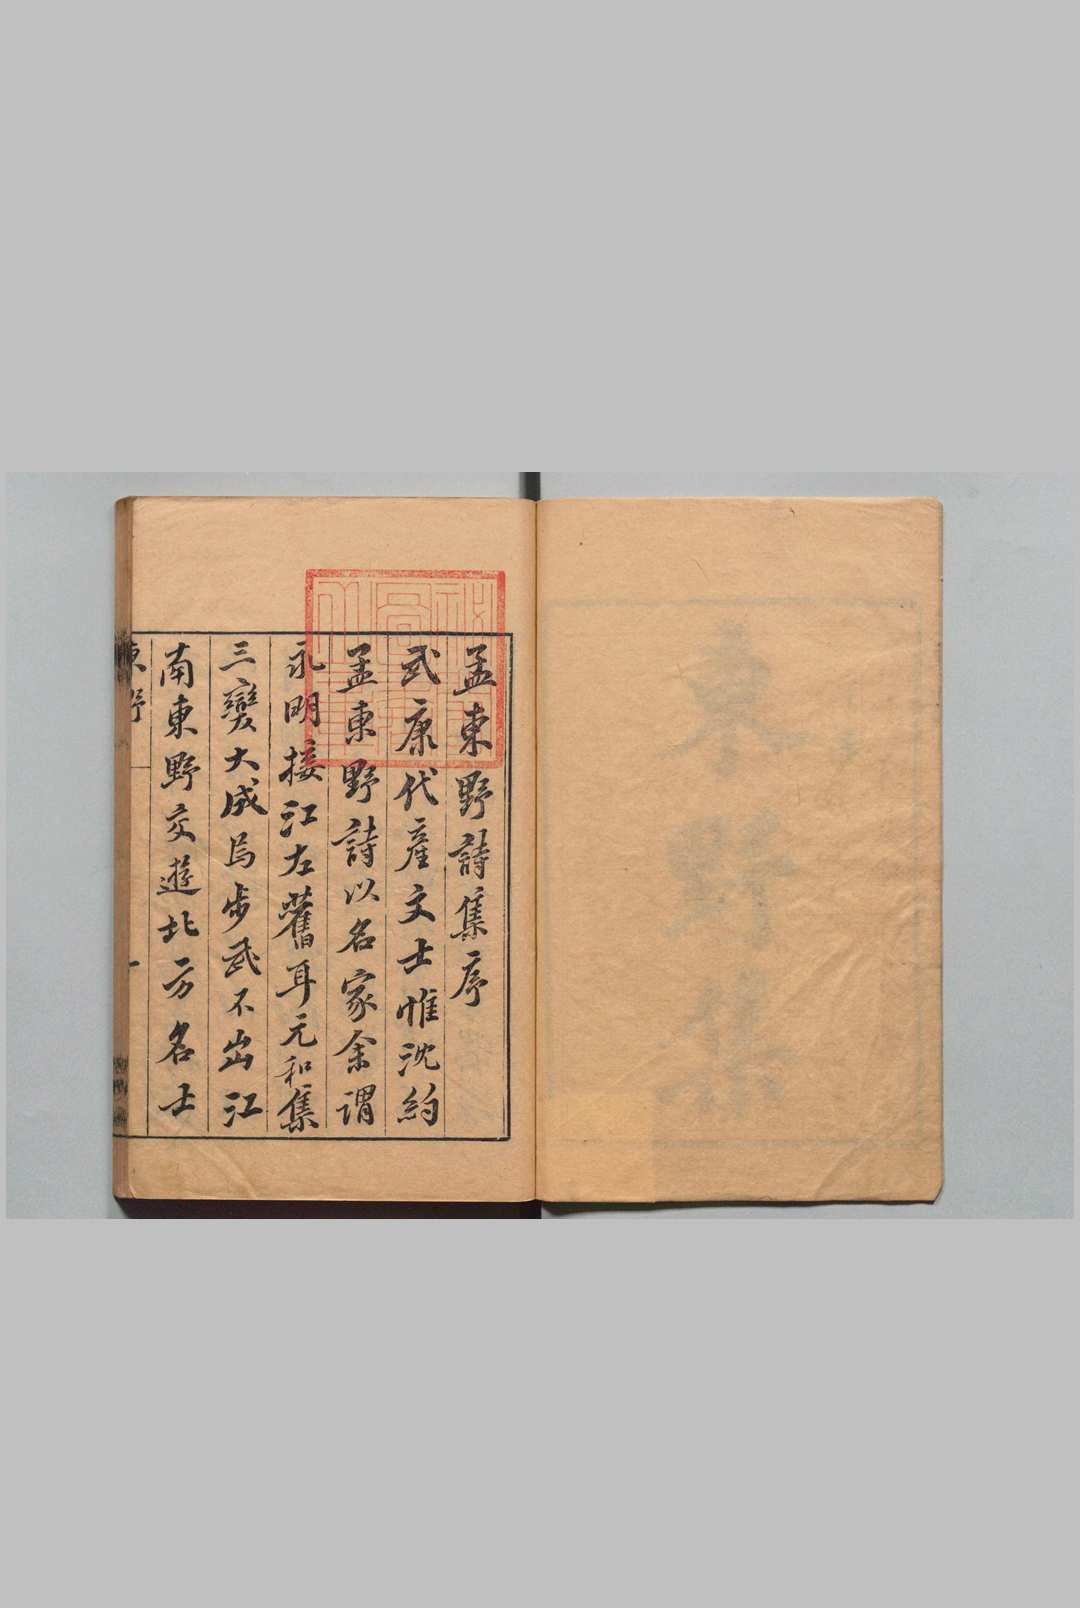 孟東野詩集序
武康代產文士惟沈約
孟東野詩以名家余謂
永明接江左舊耳元和集
三變大成焉步武不出江
南東野交遊北方名士
東野